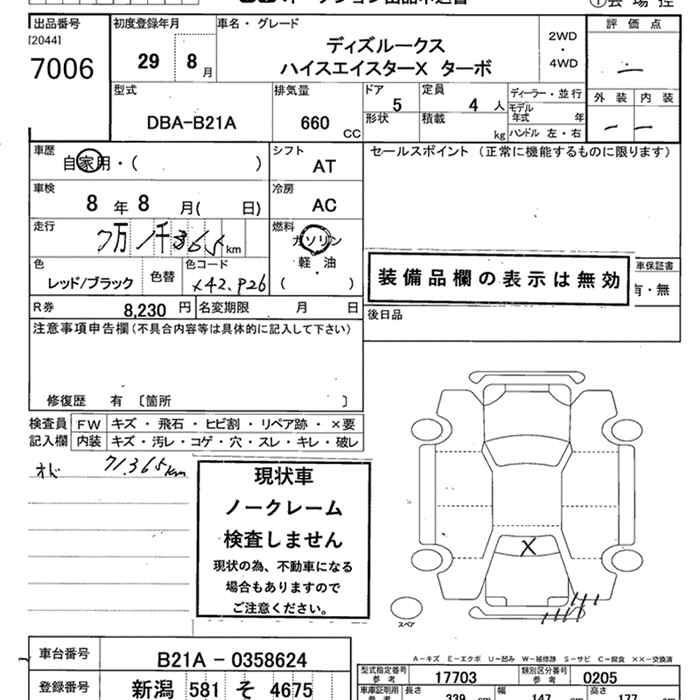 出品番号 初度登録年月 車名・グレード 評価点
[2044]
7006 29 8月 ディズルークス 2WD・4WD
ハイスエイスターX ターボ
型式 排気量 ドア 定員 ディーラー・並行 外装 内装
DBA-B21A 660 CC 5 4人 モデル年式 年
形状 積載 kg ハンドル 左・右
車歴 シフト セールスポイント(正常に機能するものに限ります)
自家用・( ) AT
車検 冷房
8年8月( 日) AC
走行 燃料
7万1千365km ガソリン
軽・油
( )
色 色替 色コード 車保証書
レッド/ブラック X42.P26 装備品欄の表示は無効 有・無
R券 8,230円 名変期限 月 日 後日品
注意事項申告欄(不具合内容等は具体的に記入して下さい)
修復歴 有 〔箇所 〕
検査員 FW キズ・飛石・ヒビ割・リペア跡・×要
記入欄 内装 キズ・汚レ・コゲ・穴・スレ・キレ・破レ
オド 71,365km
現状車
ノークレーム
検査しません
現状の為、不動車になる
場合もありますので
ご注意ください。
X
スペア
車台番号 B21A-0358624
A-キズ E-エクボ U-凹み W-補修跡 S-サビ C-腐食 ××-交換済
型式指定番号 参考 17703 類別区分番号 参考 0205
登録番号 新潟 581 そ 4675
車庫証明用 長さ 339 cm 幅 147 cm 高さ 177 cm